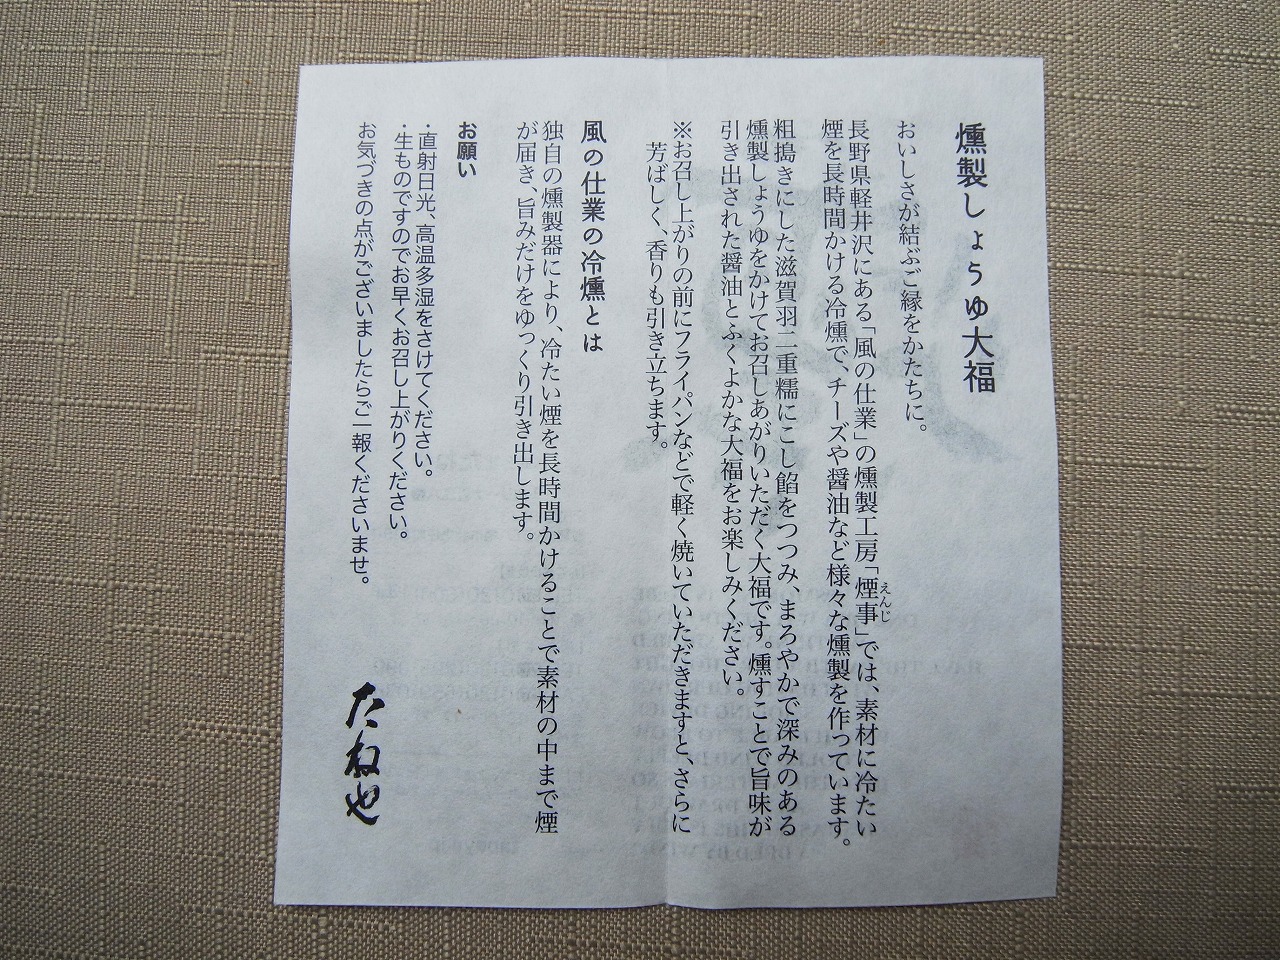 燻製しょうゆ大福
おいしさが結ぶご縁をかたちに。
長野県軽井沢にある「風の仕業」の燻製工房「煙事」では、素材に冷たい
えんじ
煙を長時間かける冷燻で、チーズや醤油など様々な燻製を作っています。
粗搗きにした滋賀羽二重糯にこし餡をつつみ、まろやかで深みのある
燻製しょうゆをかけてお召しあがりいただく大福です。燻すことで旨味が
引き出された醤油とふくよかな大福をお楽しみください。
※お召し上がりの前にフライパンなどで軽く焼いていただきますと、さらに
芳ばしく、香りも引き立ちます。
風の仕業の冷燻とは
独自の燻製器により、冷たい煙を長時間かけることで素材の中まで煙
が届き、旨みだけをゆっくり引き出します。
お願い
・直射日光、高温多湿をさけてください。
・生ものですのでお早くお召し上がりください。
お気づきの点がございましたらご一報くださいませ。
たねや